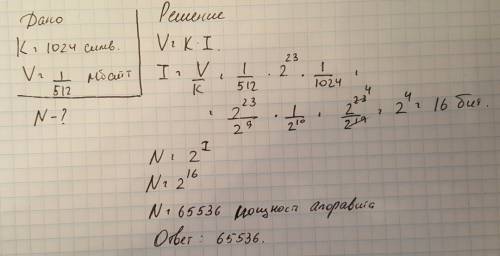 Дано
K = 1024 симв.
V = 1/512 Мбайт
N - ?
Решение
V = K · I.
I = V/K = 1/512 · 2^23 · 1/1024 =
= 2^23/2^9 · 1/2^10 = 2^23 4/2^19 = 2^4 = 16 бит.
N = 2^I
N = 2^16
N = 65536 мощность алфавита
Ответ: 65536.